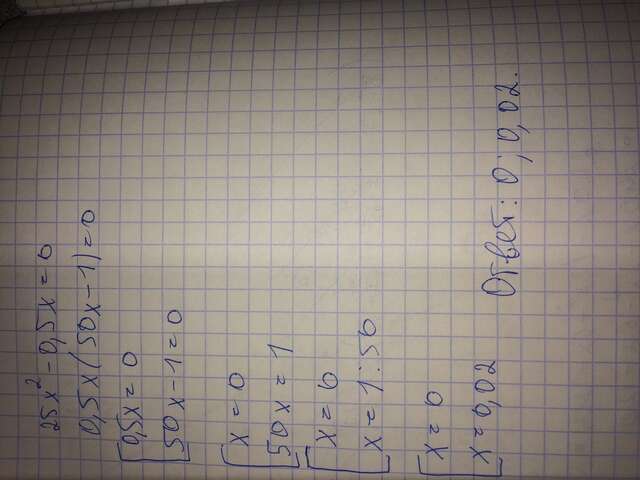 25x² - 0,5x = 0
0,5x(50x - 1) = 0
[0,5x = 0
50x - 1 = 0
[x = 0
50x = 1
[x = 0
x = 1 : 50
[x = 0
x = 0,02
Ответ: 0; 0,02.